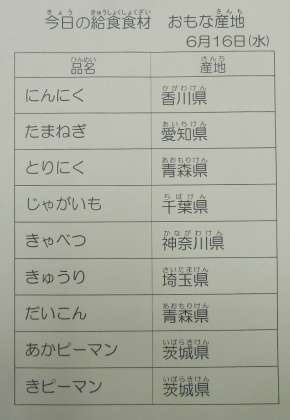 今日の給食食材 おもな産地
6月16日(水)
品名 産地
にんにく 香川県
たまねぎ 愛知県
とりにく 青森県
じゃがいも 千葉県
きゃべつ 神奈川県
きゅうり 埼玉県
だいこん 青森県
あかピーマン 茨城県
きピーマン 茨城県